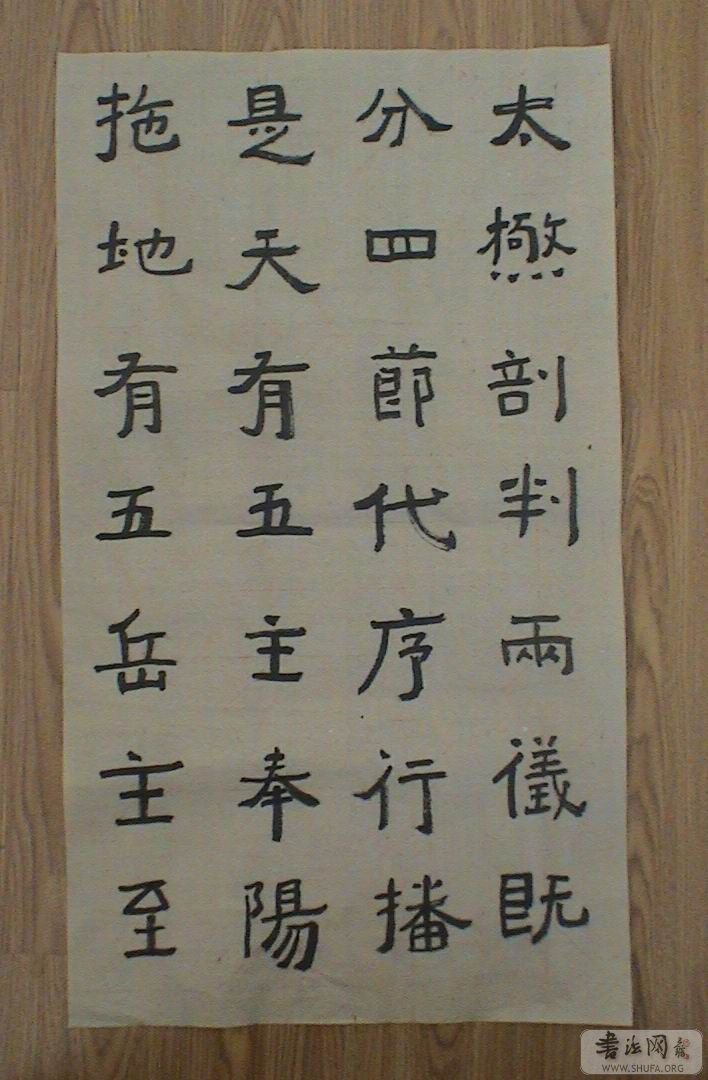 太極剖判兩儀既
分四節代序行播
是天有五主奉陽
拖地有五岳主至
書法网
WWW.SHUFA.ORG